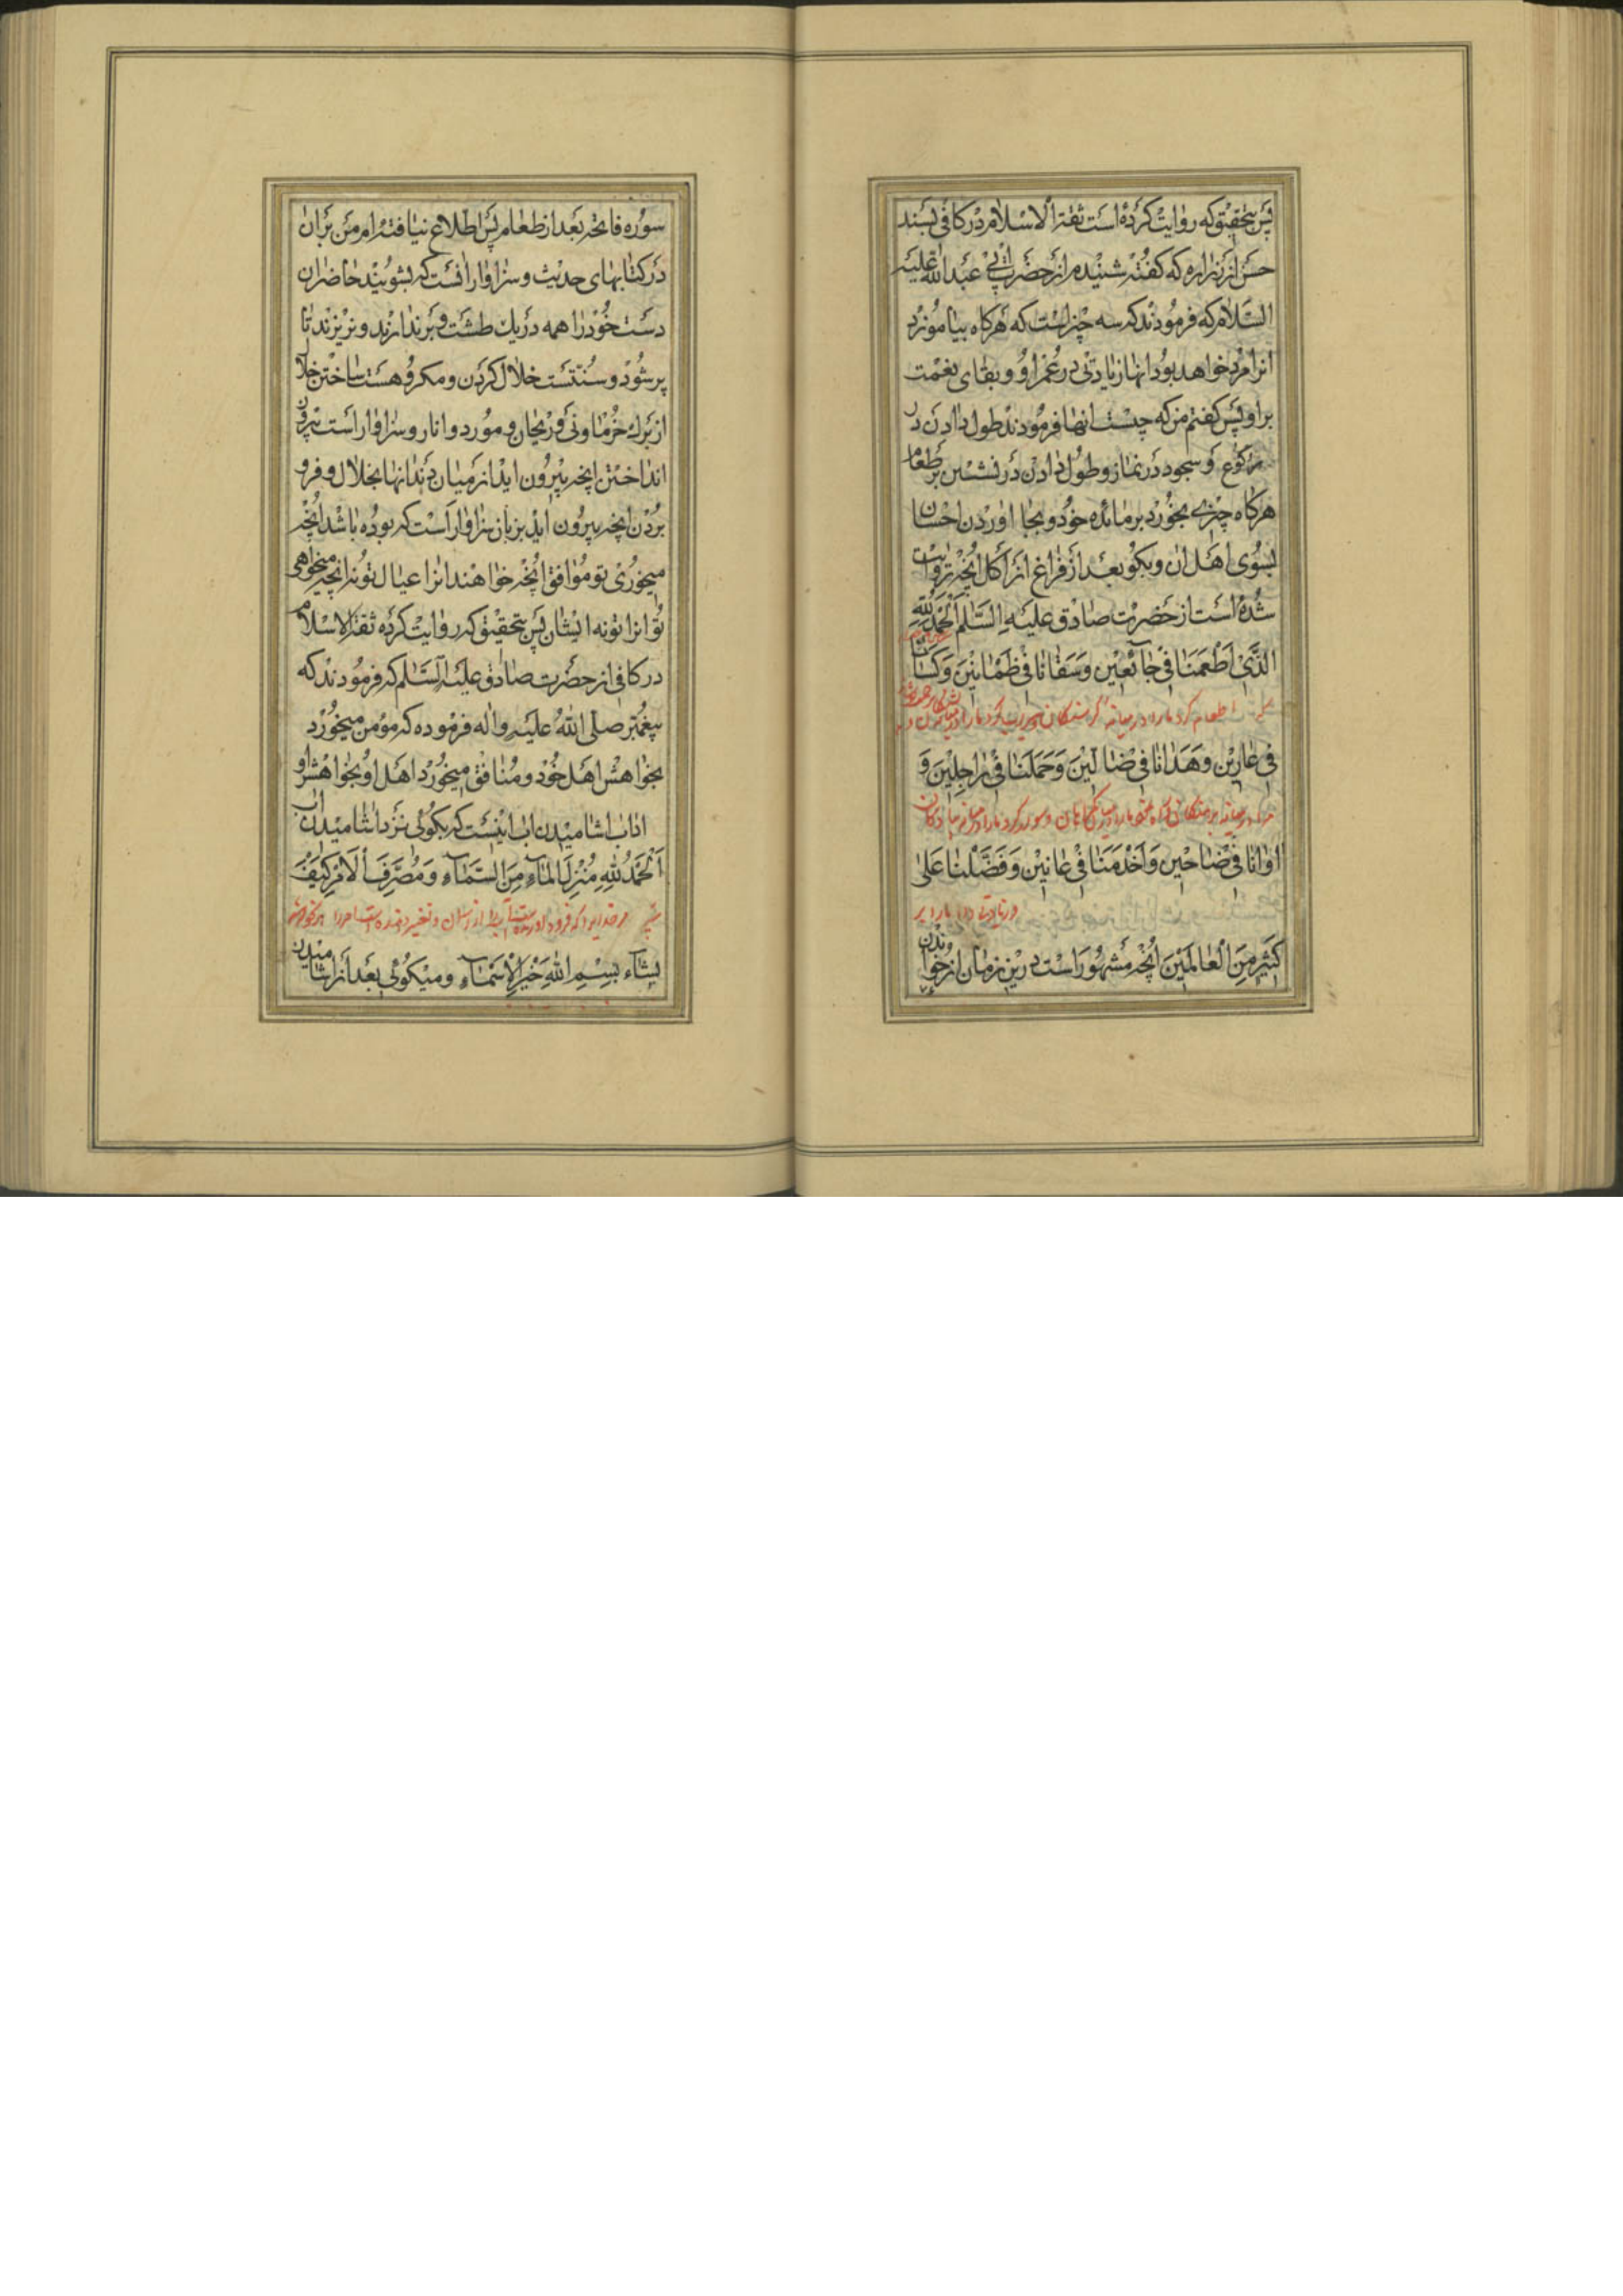 پس بتحقیق که روایت کرده است ثقة الاسلام در کافی بسند
حسن از زراره که گفته شنیدم از حضرت ابی عبد الله علیه
السلام که فرمودند که سه چیز است که هرکاه بیاموزد
انرا مرد خواهد بود انها زیادتی در عمر او و بقای نعمت
براو پس کفتم من که چیست انها فرمودند طول دادن در
رکوع و سجود در نماز و طول دادن در نشستن بر طعام
هرکاه چیزی بخورد بر مائده خود و بجا اوردن احسان
بسوی اهل ان و بکو بعد از فراغ از اکل انچه روایت
شده است از حضرت صادق علیه السلم الحمد لله
الذی اطعمنا فی جائعین و سقانا فی ظمانین وکسانا
اطعام کرد مارا در میانه کرسنکان
فی عارین وهدانا فی ضالین وحملنا فی راجلین و
اوانا فی ضاحین واخدمنا فی عانین وفضلنا علی
وزیادتی داد مارا بر
کثیر من العالمین انچه مشهور است درین زمان از خواندن
سوره فاتحه بعد از طعام پس اطلاع نیافته ام من بران
در کتابهای حدیث و سزاوار انست که بشویند حاضران
دست خود را همه در یک طشت و برندارند و نریزند تا
پر شود و سنتست خلال کردن و مکروهست ساختن خلال
از برک خرما و نی و ریحان و مورد و انار و سزاوار است بیرون
انداختن انچه بیرون اید از میان دندانها بخلال و فرو
بردن انچه بیرون اید بزبان سزاوار است که بوده باشد انچه
میخوری تو موافق انچه خواهند انرا عیال تو نه انچه میخواهی
تو انرا تو نه ایشان پس بتحقیق که روایت کرده ثقة الاسلام
در کافی از حضرت صادق علیه السلم که فرمودند که
پیغمبر صلی الله علیه واله فرموده که مؤمن میخورد
بخواهش اهل خود و منافق میخورد اهل او بخواهش او
اداب اشامیدن اب اینست که بکوئی نزد اشامیدن اب
الحمد لله منزل الماء من السماء ومصرف الامر کیف
یشاء بسم الله خیر الاسماء و میکوئی بعد از اشامیدن